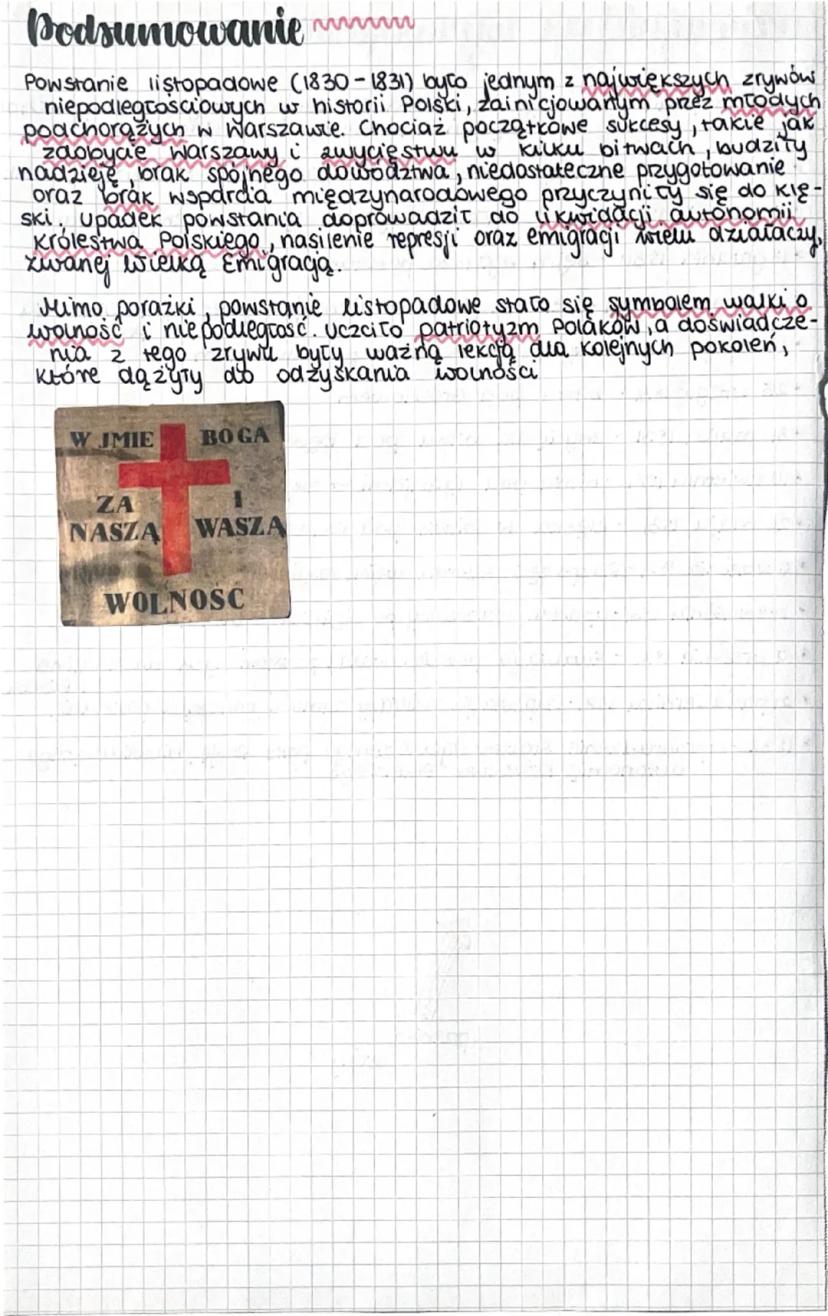 Podsumowanie
Powstanie listopadowe (1830-1831) było jednym z największych zrywów
niepodległościowych w historii Polski, zainicjowanym przez młodych
podchorążych w Warszawie. Chociaż początkowe sukcesy, takie jak
zdobycie Warszawy i zwycięstwu w kilku bitwach, budziły
nadzieję, brak spójnego dowództwa, niedostateczne przygotowanie
oraz brak wsparcia międzynarodowego przyczyniły się do klę-
ski. Upadek powstania doprowadził do likwidacji autonomii
królestwa Polskiego, nasilenie represji oraz emigracji wielu działaczy,
zwanej Wielką Emigracją.
Mimo porażki, powstanie listopadowe stało się symbolem walki o
wolność i niepodległość. Uczciło patriotyzm Polaków, a doświadcze-
nia z tego zrywu były ważną lekcją dla kolejnych pokoleń,
które dążyły do odzyskania wolności
W IMIE BOGA
ZA I
NASZĄ WASZĄ
WOLNOŚĆ